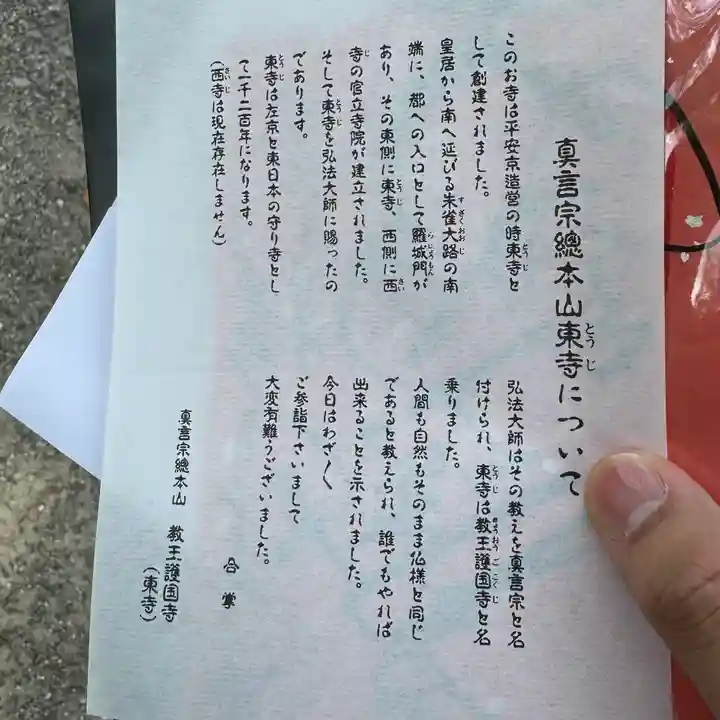 真言宗總本山東寺について
このお寺は平安京造営の時東寺と
して創建されました。
皇居から南へ延びる朱雀大路の南
端に、都への入口として羅城門が
あり、その東側に東寺、西側に西
寺の官立寺院が建立されました。
そして東寺を弘法大師に賜ったの
であります。
東寺は左京と東日本の守り寺とし
て一千二百年になります。
(西寺は現在存在しません)
弘法大師はその教えを真言宗と名
付けられ、東寺は教王護国寺と名
乗りました。
人間も自然もそのまま仏様と同じ
であると教えられ、誰でもやれば
出来ることを示されました。
今日はわざ〱
ご参詣下さいまして
大変有難うございました。
合掌
真言宗總本山 教王護国寺
(東寺)